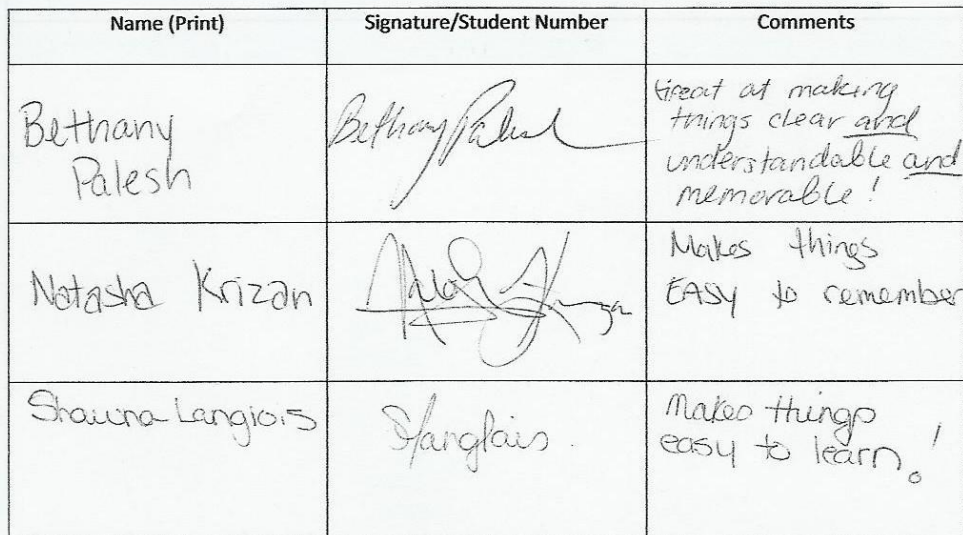 Name (Print) Signature/Student Number Comments
Bethany
Palesh
Bethany Palesh
Great at making
things clear and
understandable and
memorable!
Natasha Krizan
Makes things
EASY to remember
Shawna Langlois
SLanglois
Makes things
easy to learn!